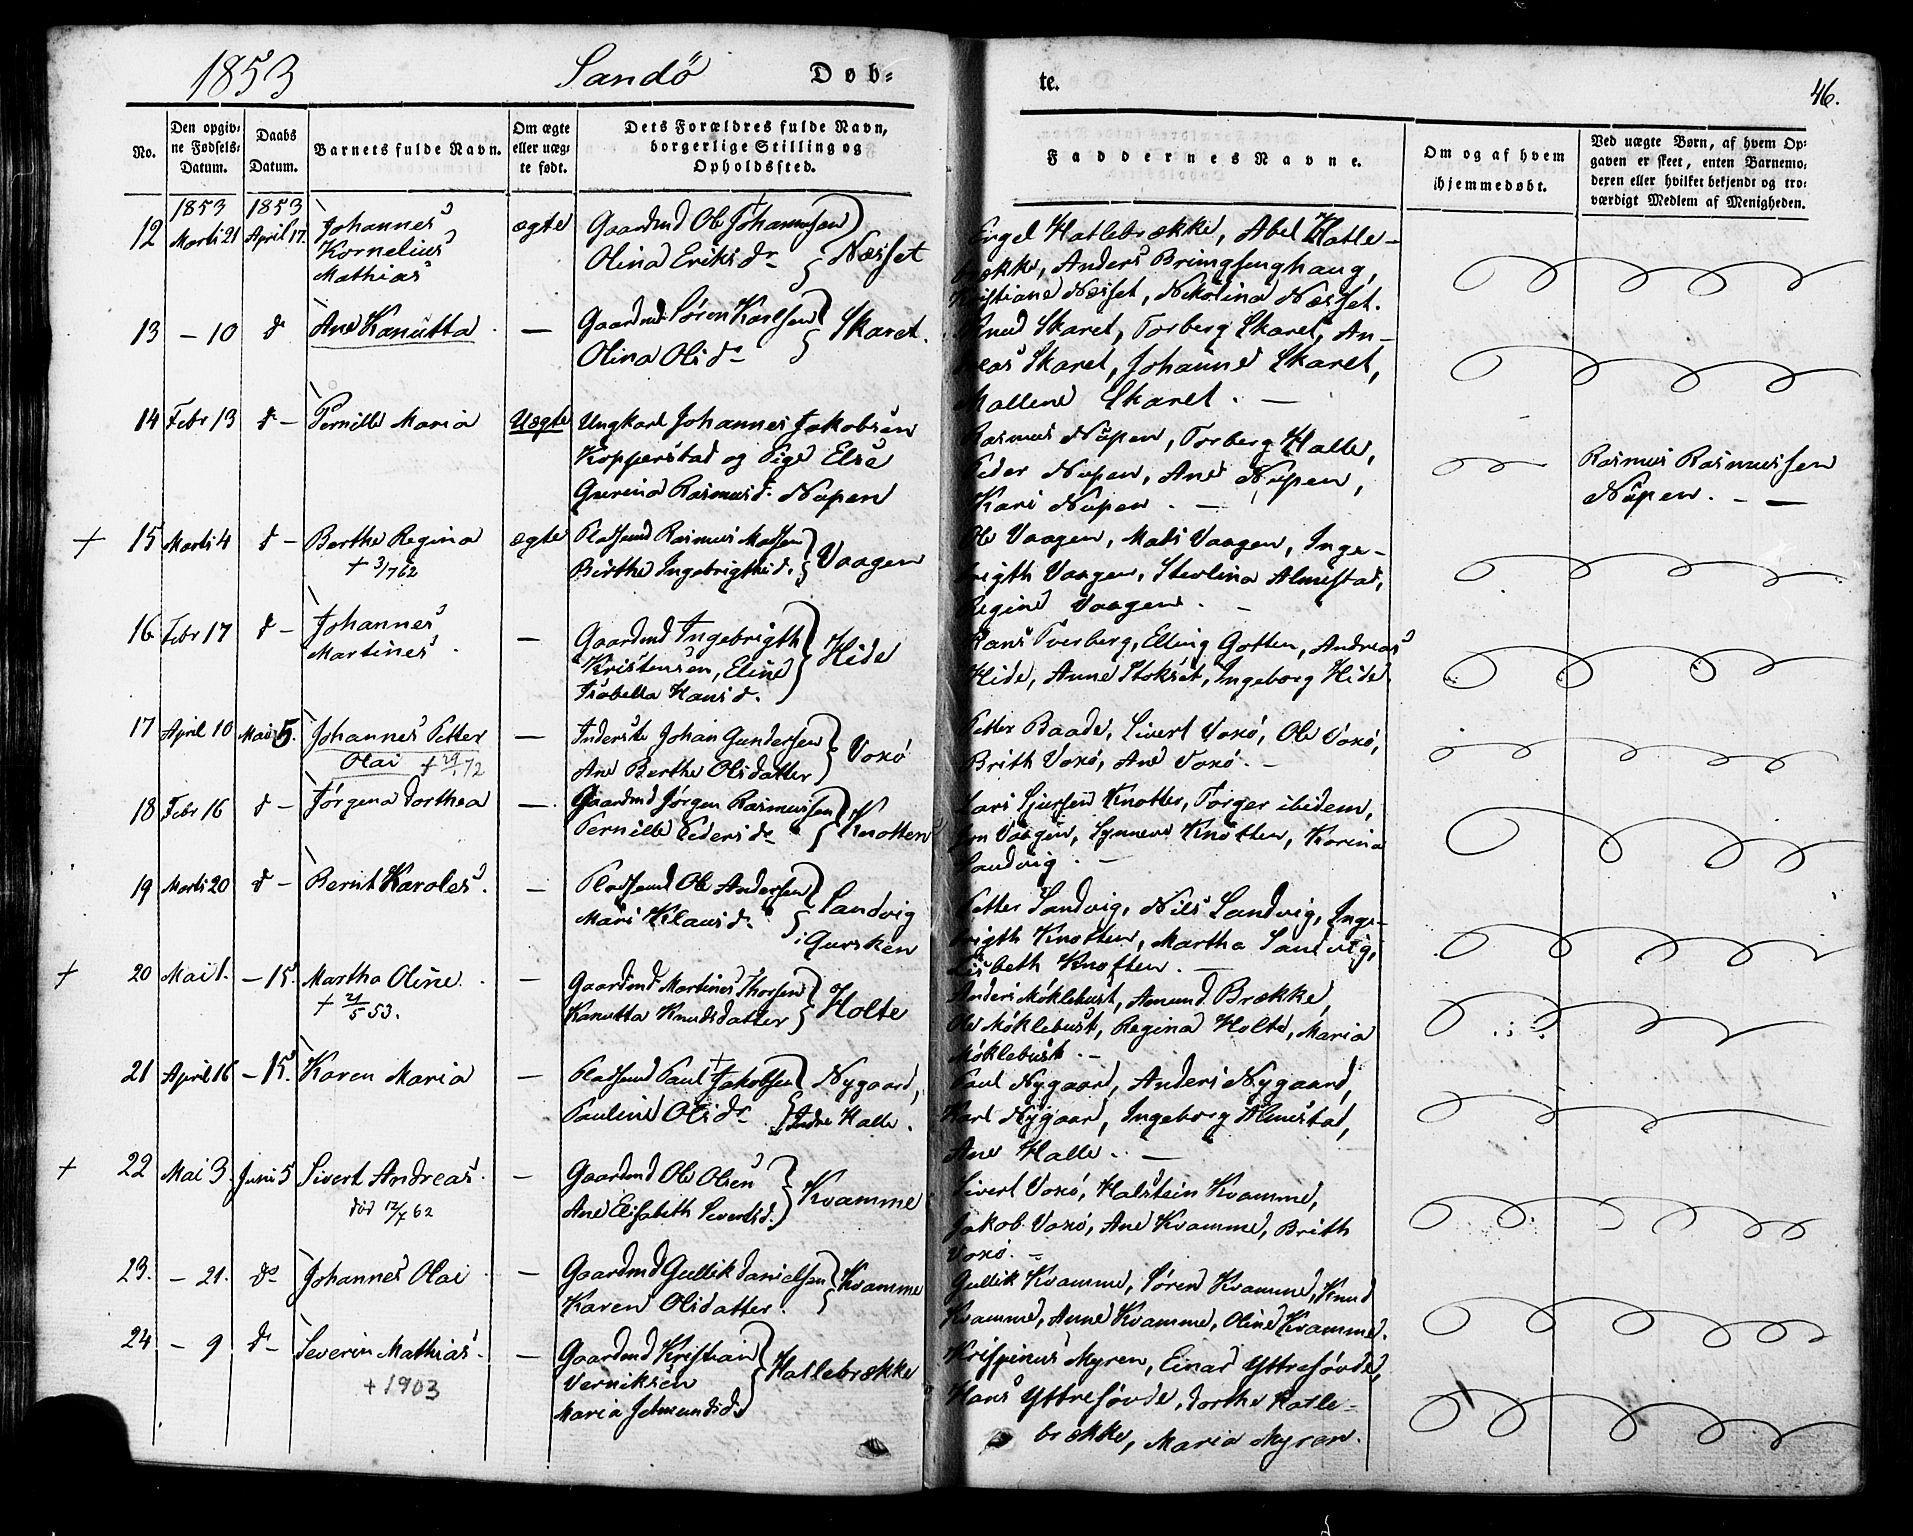 1853 Sandö Døb=
te. 46.
No.
Den opgiv=
ne Fødsels=
Datum.
Daabs
Datum.
Barnets fulde Navn.
Om ægte
eller uæg=
te født.
Dets Forældres fulde Navn,
borgerlige Stilling og
Opholdssted.
Faddernes Navne.
Om og af hvem
hjemmedøbt.
Ved uægte Børn, af hvem Op=
gaven er skeet, enten Barnemo=
deren eller hvilket bekjendt og tro=
værdigt Medlem af Menigheden.
1853 1853
12 Marti 21 April 17. Johannes ægte Gaardmd Ole Johannesen
Kornelius Olina Eriksdr Næsset
Mathias
Engel Hatlebrække, Abel Hatle-
brække, Anders Bringsenghaug,
Kristiane Næsset, Nikolina Næsset.
13 - 10 do Ane Kanutta - Gaardmd Søren Karlsen Skaret.
Olina Olsdr
Knud Skaret, Torberg Skaret, An-
dreas Skaret, Johanne Skaret,
Mallene Skaret. -
14 Febr 13 do - Pernille Maria Uægte Ungkarl Johannes Jakobsen
Kopperstad og Pige Else
Gurina Rasmusd. Nupen
Rasmus Nupen, Torberg Halle,
Peder Nupen, Ane Nupen,
Kari Nupen. -
Rasmus Rasmussen
Nupen. - -
+ 15 Marti 4 do - Berthe Regina ægte Pladsmd Rasmus Madsen
+ 3/7 62 Berthe Ingebrigthsd. Vaagen
Ole Vaagen, Mats Vaagen, Inge-
brigth Vaagen, Stevlina Almestad,
Regine Vaagen. -
16 Febr 17 do - Johannes - Gaardmd Ingebrigth
Martines. Kristensen, Eline Hide
Isabella Hansd.
Hans Tverberg, Elling Gotten, Andreas
Hide, Anne Stokset, Ingeborg Hide.
17 April 10 Mai 5. Johannes Petter - Inderste Johan Gundersen
Olai + 29/1 72 Ane Berthe Olsdatter Voxö
Petter Baade, Sivert Voxö, Ole Voxö,
Brith Voxö, Ane Voxö. -
18 Febr 16 do - Jörgena Dorthea - Gaardmd Jörgen Rasmussen
Pernille Pedersdr Knotten
Lars Sjursen Knotten, Torger ibidem,
Jon Vaagen, Synneve Knotten, Korina
Sandvig. -
19 Marti 20 do - Bernt Karoles. - Pladsmd Ole Andersen
Mari Klausdr. Sandvig
i Gursken
Petter Sandvig, Nils Sandvig, Inge-
brigth Knotten, Martha Sandvig,
Lisbeth Knotten. -
+ 20 Mai 1. - 15. Martha Oline. - Gaardmd Martines Thorsen
+ 21/5 53. Kanutta Knudsdatter Holte
Anders Möklebust, Amund Brække,
Ole Möklebust, Regina Holte, Maria
Möklebust. -
21 April 16 - 15. Karen Maria - Pladsmd Paul Jakobsen Nygaard,
Pauline Olsdr Indre Halle.
Paul Nygaard, Anders Nygaard,
Karl Nygaar, Ingeborg Almestad,
Ane Halle. -
+ 22 Mai 3. Juni 5 Sivert Andreas. - Gaardmd Ole Olsen
död 12/7 62 Ane Elisabeth Sivertsd. Kvamme
Sivert Voxö, Halstein Kvamme,
Jakob Voxö, Ane Kvamme, Brith
Voxö. -
23. - 21. do Johannes Olai - Gaardmd Gullik Danielsen Kvamme
Karen Olsdatter.
Gullik Kvamme, Sören Kvamme, Knud
Kvamme, Anne Kvamme, Oline Kvamme.
24 - 9 do - Severin Mathias. - Gaardmd Kristian
+ 1903 Verniksen Hatlebrække
Maria Jetmundsd.
Krispinus Myren, Einar Yttresövde,
Hans Yttresövde, Dorthe Hatle-
brække, Maria Myren.